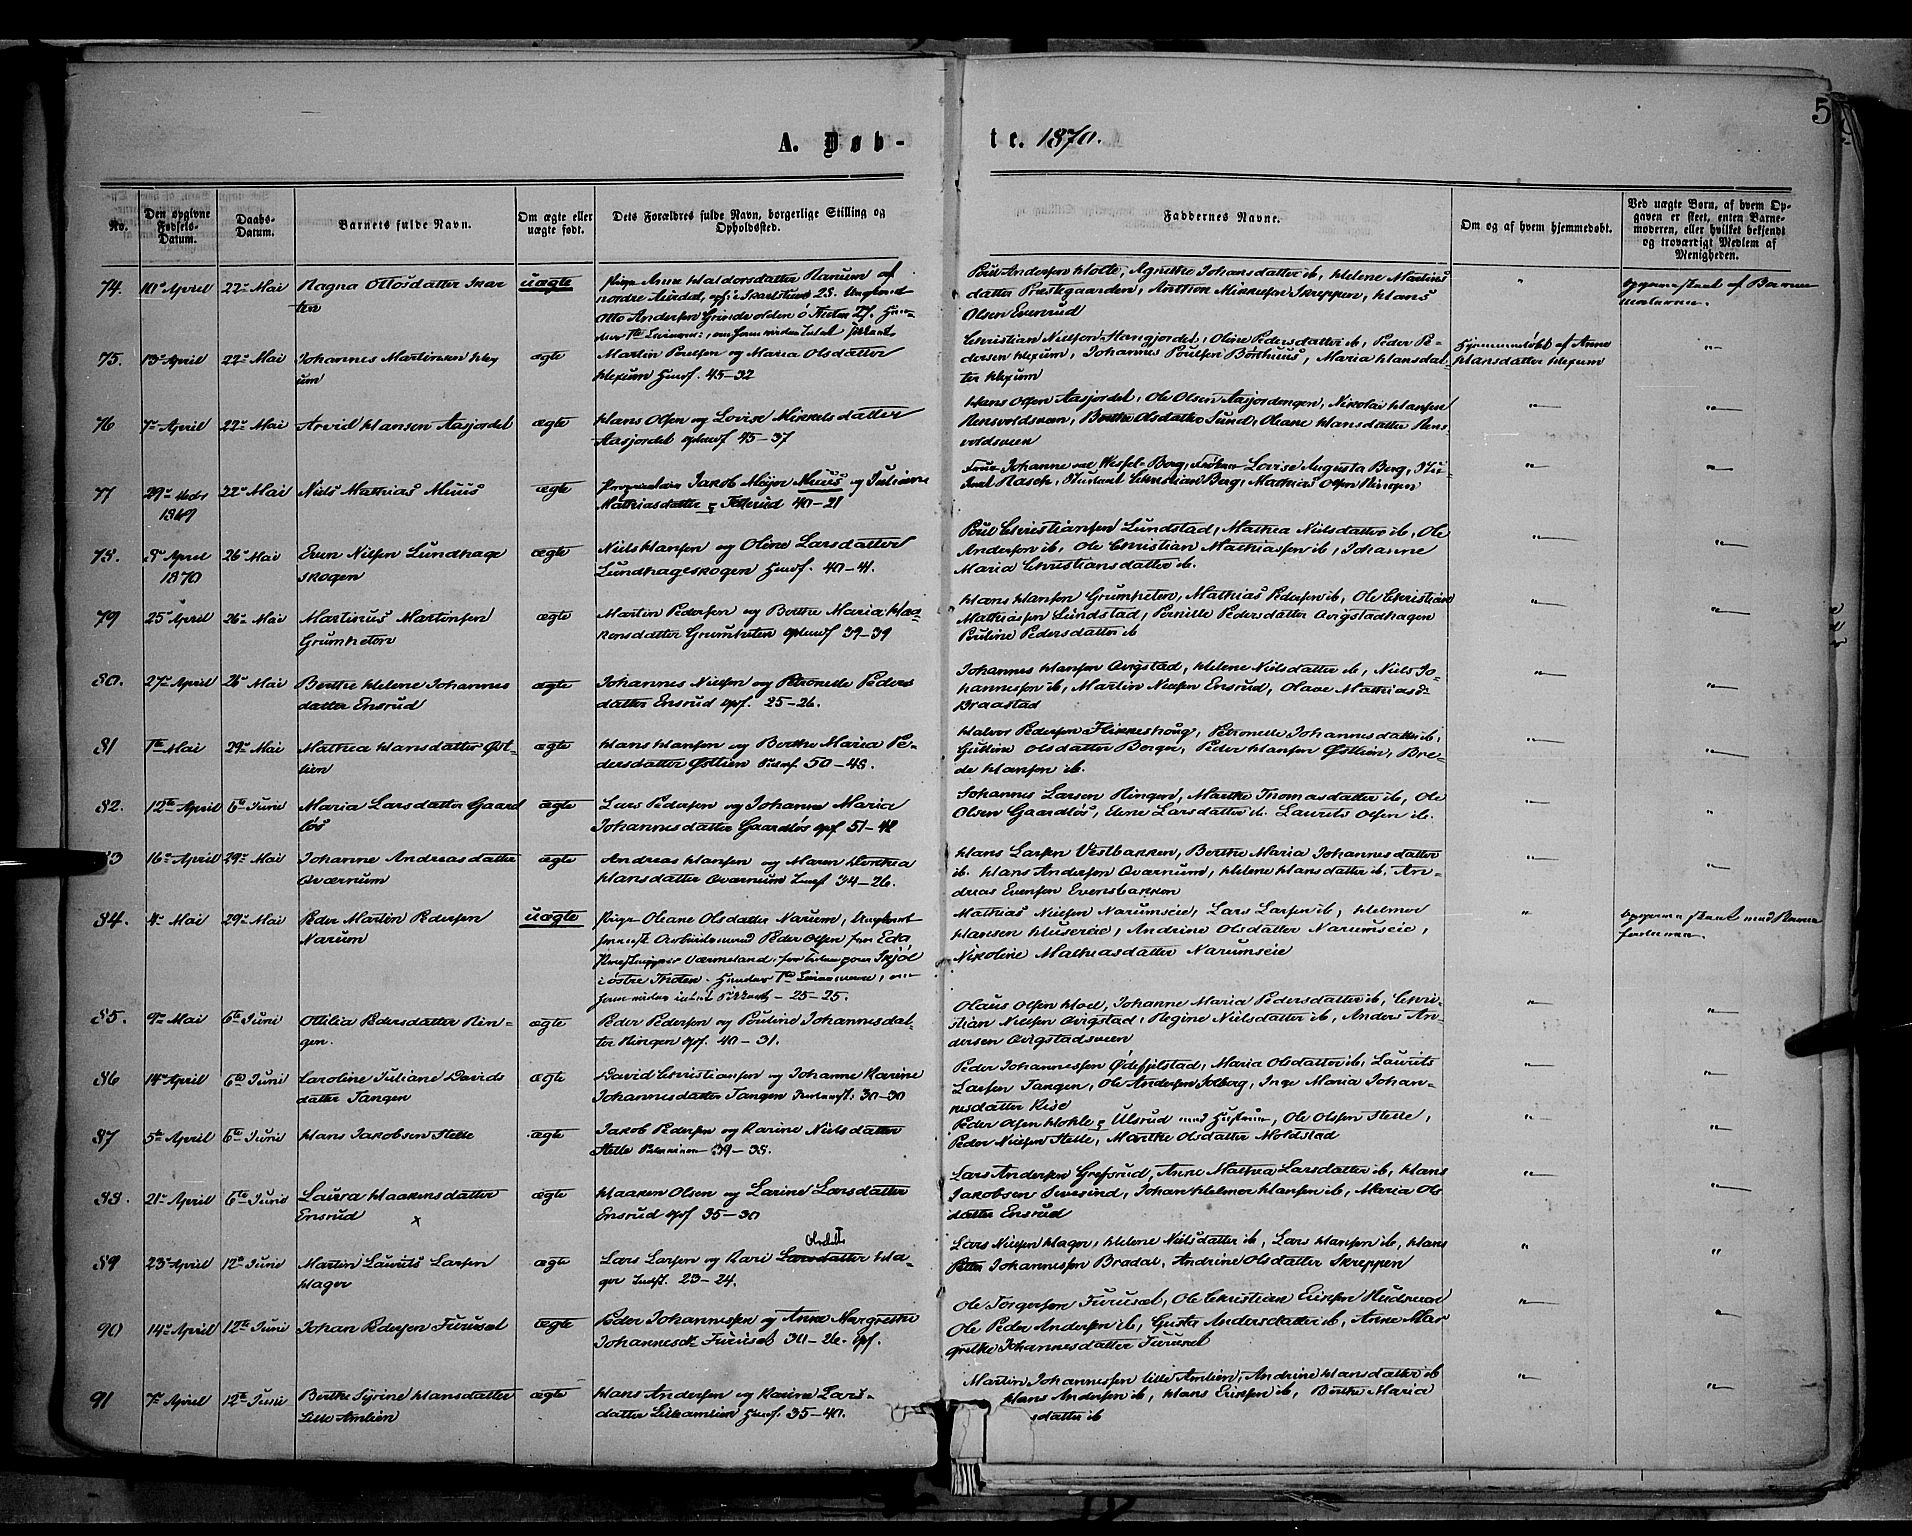 5
A. Døb-
te. 1870.
No.
Den opgivne
Fødsels-
Datum.
Daabs-
Datum.
Barnets fulde Navn.
Om ægte eller
uægte født.
Dets Forældres fulde Navn, borgerlige Stilling og
Opholdssted.
Faddernes Navne.
Om og af hvem hjemmedøbt.
Ved uægte Børn, af hvem Op-
gaven er skeet, enten Barne-
moderen, eller hvilket bekjendt
og troværdigt Medlem af
Menigheden.
74. 10de April 22de Mai Ragna Ottosdatter uægte
Pige Anne Haldorsdatter Ranum af
nordre Aurdal, 28. Ungkarl
Otto Andersen Grindeolden
Poul Andersen Holte, Agnethe Johansdatter ib, Helene Martins
datter Præstgaarden, Anthon Mikkelsen Skreppen, Hans
Olsen Evenrud
75. 13de April 22de Mai Johannes Martinsen Hex
um
ægte
Martin Poulsen og Maria Olsdatter
Hexum Huusf. 45-32
Christian Nilsen Hangjordet, Oline Pedersdatter ib, Peder Pe-
dersen Hexum, Johannes Poulsen Børthuus, Maria Hansdat-
ter Hexum
Hjemmedøbt af Anne
Hansdatter Hexum
76 7de April 22de Mai Arvid Hansen Aasjordet ægte
Hans Olsen og Lovise Mikkelsdatter
Aasjordet 45-37
Hans Olsen Aasjordet, Ole Olsen Aasjordengen, Nikolai Hansen
Rensvoldsveen, Berthe Olsdatter Sund, Oleane Hansdatter Rens-
voldsveen
77 29de 1869 22de Mai Niels Mathias Muus ægte
Jakob Mejer Muus og Juliane
Mathiasdatter 40-21
Frue Johanne Wessel-Berg, Frøken Lovise Augusta Berg,
Rasch, Student Christian Berg, Mathias Olsen Ringen
78. 8de April 1870 26de Mai Even Nilsen Lundhage
skogen
ægte
Niels Hansen og Oline Larsdatter
Lundhageskogen Huusf. 40-41.
Poul Christiansen Lundstad, Mathea Nielsdatter ib, Ole
Andersen ib, Ole Christian Mathiassen ib, Johanne
Maria Christiansdatter ib.
79 25de April 26de Mai Martinus Martinsen
Grumheten
ægte
Martin Pedersen og Berthe Maria Haa-
konsdatter Grumheten 39-39
Hans Hansen Grumheten, Mathias Pedersen ib, Ole Christian
Mathiassen Lundstad, Pernille Pedersdatter Qvigstadhagen
Pauline Pedersdatter ib
80. 27de April 26de Mai Berthe Helene Johannes
datter Ensrud
ægte
Johannes Nielsen og Petronelle Peders
datter Ensrud 25-26.
Johannes Hansen Qvigstad, Helene Nielsdatter ib, Niels Jo-
hannessen ib, Martin Nielsen Ensrud, Olave Mathiasd:
Braastad
81 1ste Mai 29de Mai Mathea Hansdatter Øst-
lien
ægte
Hans Hansen og Berthe Maria Pe-
dersdatter Østlien 50-48.
Halvor Pedersen Flikkeshoug, Petronelle Johannesdatter ib,
Gubline Olsdatter Berger, Peder Hansen Østlien, Bre-
de Hansen ib.
82. 12te April 6te Juni Maria Larsdatter Gaard
løs
ægte
Lars Pedersen og Johanne Maria
Johannesdatter Gaardløs 51-42
Johannes Larsen Ringen, Marthe Thomasdatter ib, Ole
Olsen Gaardløs, Elene Larsdatter ib. Laurits Olsen ib.
83 16de April 29de Mai Johanne Andreasdatter
Qværnum
ægte
Andreas Hansen og Maren Dorthea
Hansdatter Qværnum 34-26.
Hans Larsen Vestbakken, Berthe Maria Johannesdatter
ib. Hans Andersen Qværnum, Helene Hansdatter ib. An-
dreas Evensen Evensbakken
84. 4de Mai 29de Mai Peder Martin Pedersen
Narum
uægte
Pige Oleane Olsdatter Narum, Ungkarl
Arbeidsmand Peder Olsen fra Eda
Værmeland
østre Thoten 25-25.
Mathias Nielsen Narumseie, Lars Larsen ib, Helmer
Hansen Huusereie, Andrine Olsdatter Narumseie,
Nikoline Mathiasdatter Narumseie
85. 9de Mai 6te Juni Ottilia Pedersdatter Rin-
gen.
ægte
Peder Pedersen og Pouline Johannesdat-
ter Ringen 40-31.
Olaus Olsen Hoel, Johanne Maria Pedersdatter ib, Chri-
stian Nielsen Qvigstad, Regine Nielsdatter ib, Anders An-
dersen Qvigstadsveen
86 14de April 6te Juni Caroline Juliane Davids
datter Tangen
ægte
David Christiansen og Johanne Karine
Johannesdatter Tangen 30-30
Peder Johannessen Ødefjelstad, Maria Olsdatter ib, Laurits
Larsen Tangen, Ole Andersen Solberg, Inge Maria Johan-
nesdatter Rise
87 5te April 6te Juni Hans Jakobsen Stelle ægte
Jakob Pedersen og Karine Nielsdatter
Stelle 39-35.
Peder Olsen Hokle Ulsrud med Hustru, Ole Olsen Stelle,
Peder Nielsen Stelle, Marthe Olsdatter Moldstad
88. 21de April 6te Juni Laura Haakensdatter
Ensrud x
ægte
Haaken Olsen og Larine Larsdatter
Ensrud 35-30
Lars Andersen Grefsrud, Anne Mathea Larsdatter ib, Hans
Jakobsen Sivesind, Johan Helmer Hansen ib, Maria Ols
datter Ensrud
89 23de April 12te Juni Martin Laurits Larsen
Hager
ægte
Olsdatt.
Lars Larsen og Kari Larsdatter Ha-
ger 23-24.
Lars Nielsen Hager, Helene Nielsdatter ib, Lars Hansen ib, Hans
Johannessen Bradal, Andrine Olsdatter Skreppen
90 14de April 12te Juni Johan Pedersen Furuset ægte
Peder Johannessen og Anne Margrethe
Johannesd: Furuset 30-26.
Ole Torgersen Furuset, Ole Christian Eriksen
Ole Peder Andersen ib, Gusta Andersdatter ib, Anne Mar
grethe Johannesdatter Furuset
91 7de April 12te Juni Berthe Syrine Hansdatter
Lille Amlien
ægte
Hans Andersen og Karine Lars-
datter Lilleamlien Huusf. 35-40.
Martin Johannessen lille Amlien, Andrine Hansdatter ib
Hans Andersen ib, Hans Eriksen ib, Berthe Maria
sdatter ib